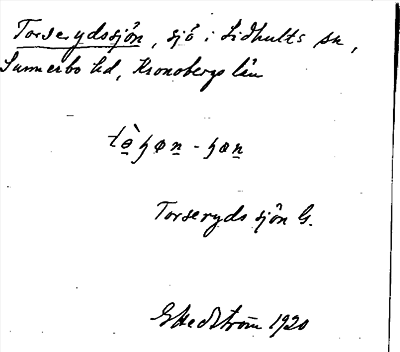 Torserydssjön, sjö i Lidhults sn,
Sunnerbo hd, Kronobergs län
Torseryds sjön G.
G Hedström 1920